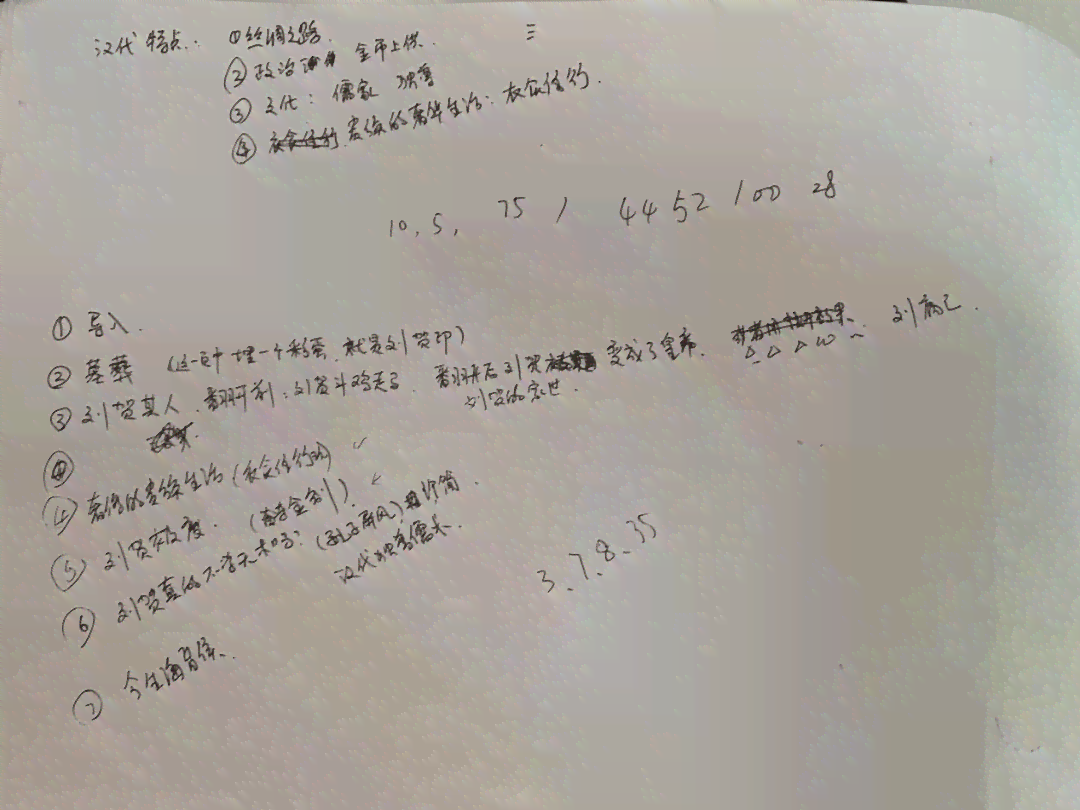 汉代特点: ①丝绸之路. 三
② 政治 金币上供.
③ 文化: 儒家 独尊
④ 贵族的奢华生活: 衣食住行.
10, 5, 75 / 44 52 100 28
① 导入.
② 墓葬 (这一页中 埋一个彩蛋, 就是刘贺印)
③ 刘贺其人. 翻开前: 刘贺斗鸡走马. 翻开后刘贺 变成了皇帝. 刘病已.
刘贺的家世.
④
④ 奢侈的贵族生活 (衣食住行的) ✓
⑤ 刘贺被废. ✓
⑥ 刘贺真的不学无术吗? (孔子屏风) 竹简.
汉代独尊儒术.
3、7、8、35
⑦ 今生海昏侯.